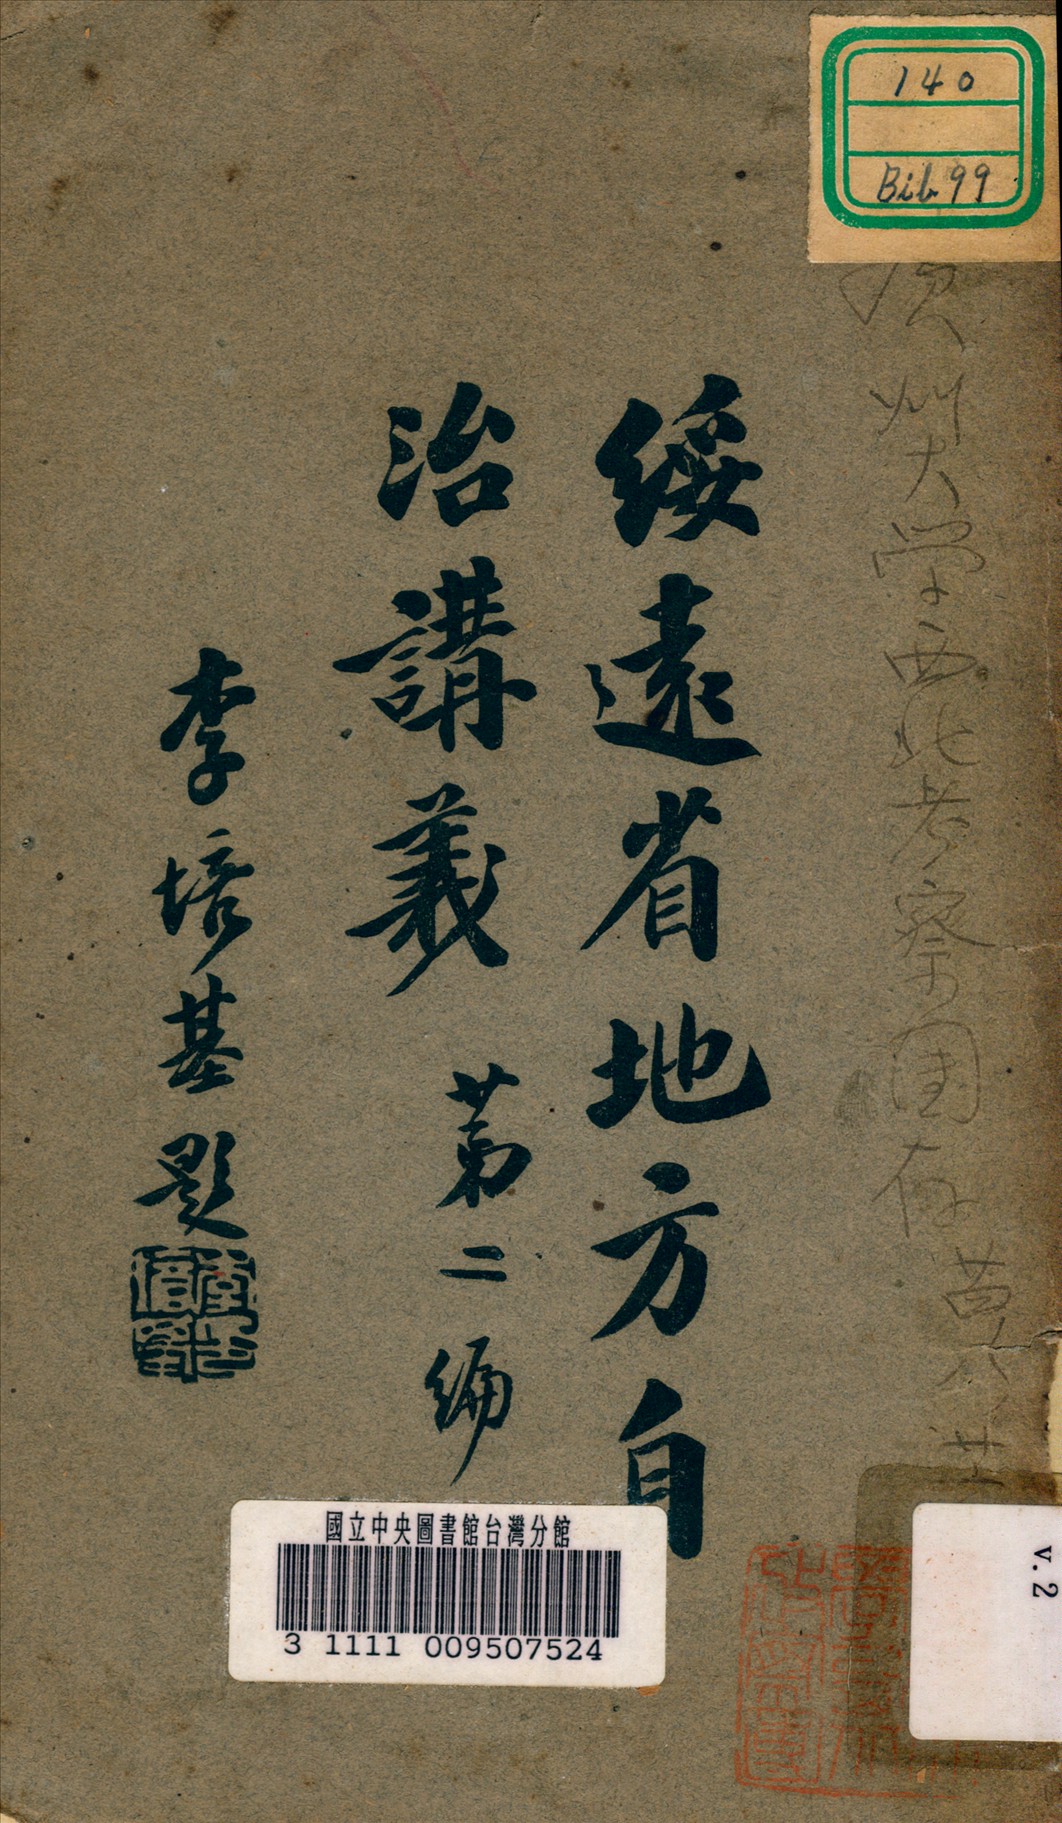 140
Bib 99
綏遠省地方自
治講義 第二編
李培基題
大学西北考察団
國立中央圖書館台灣分館
3 1111 009507524
v.2